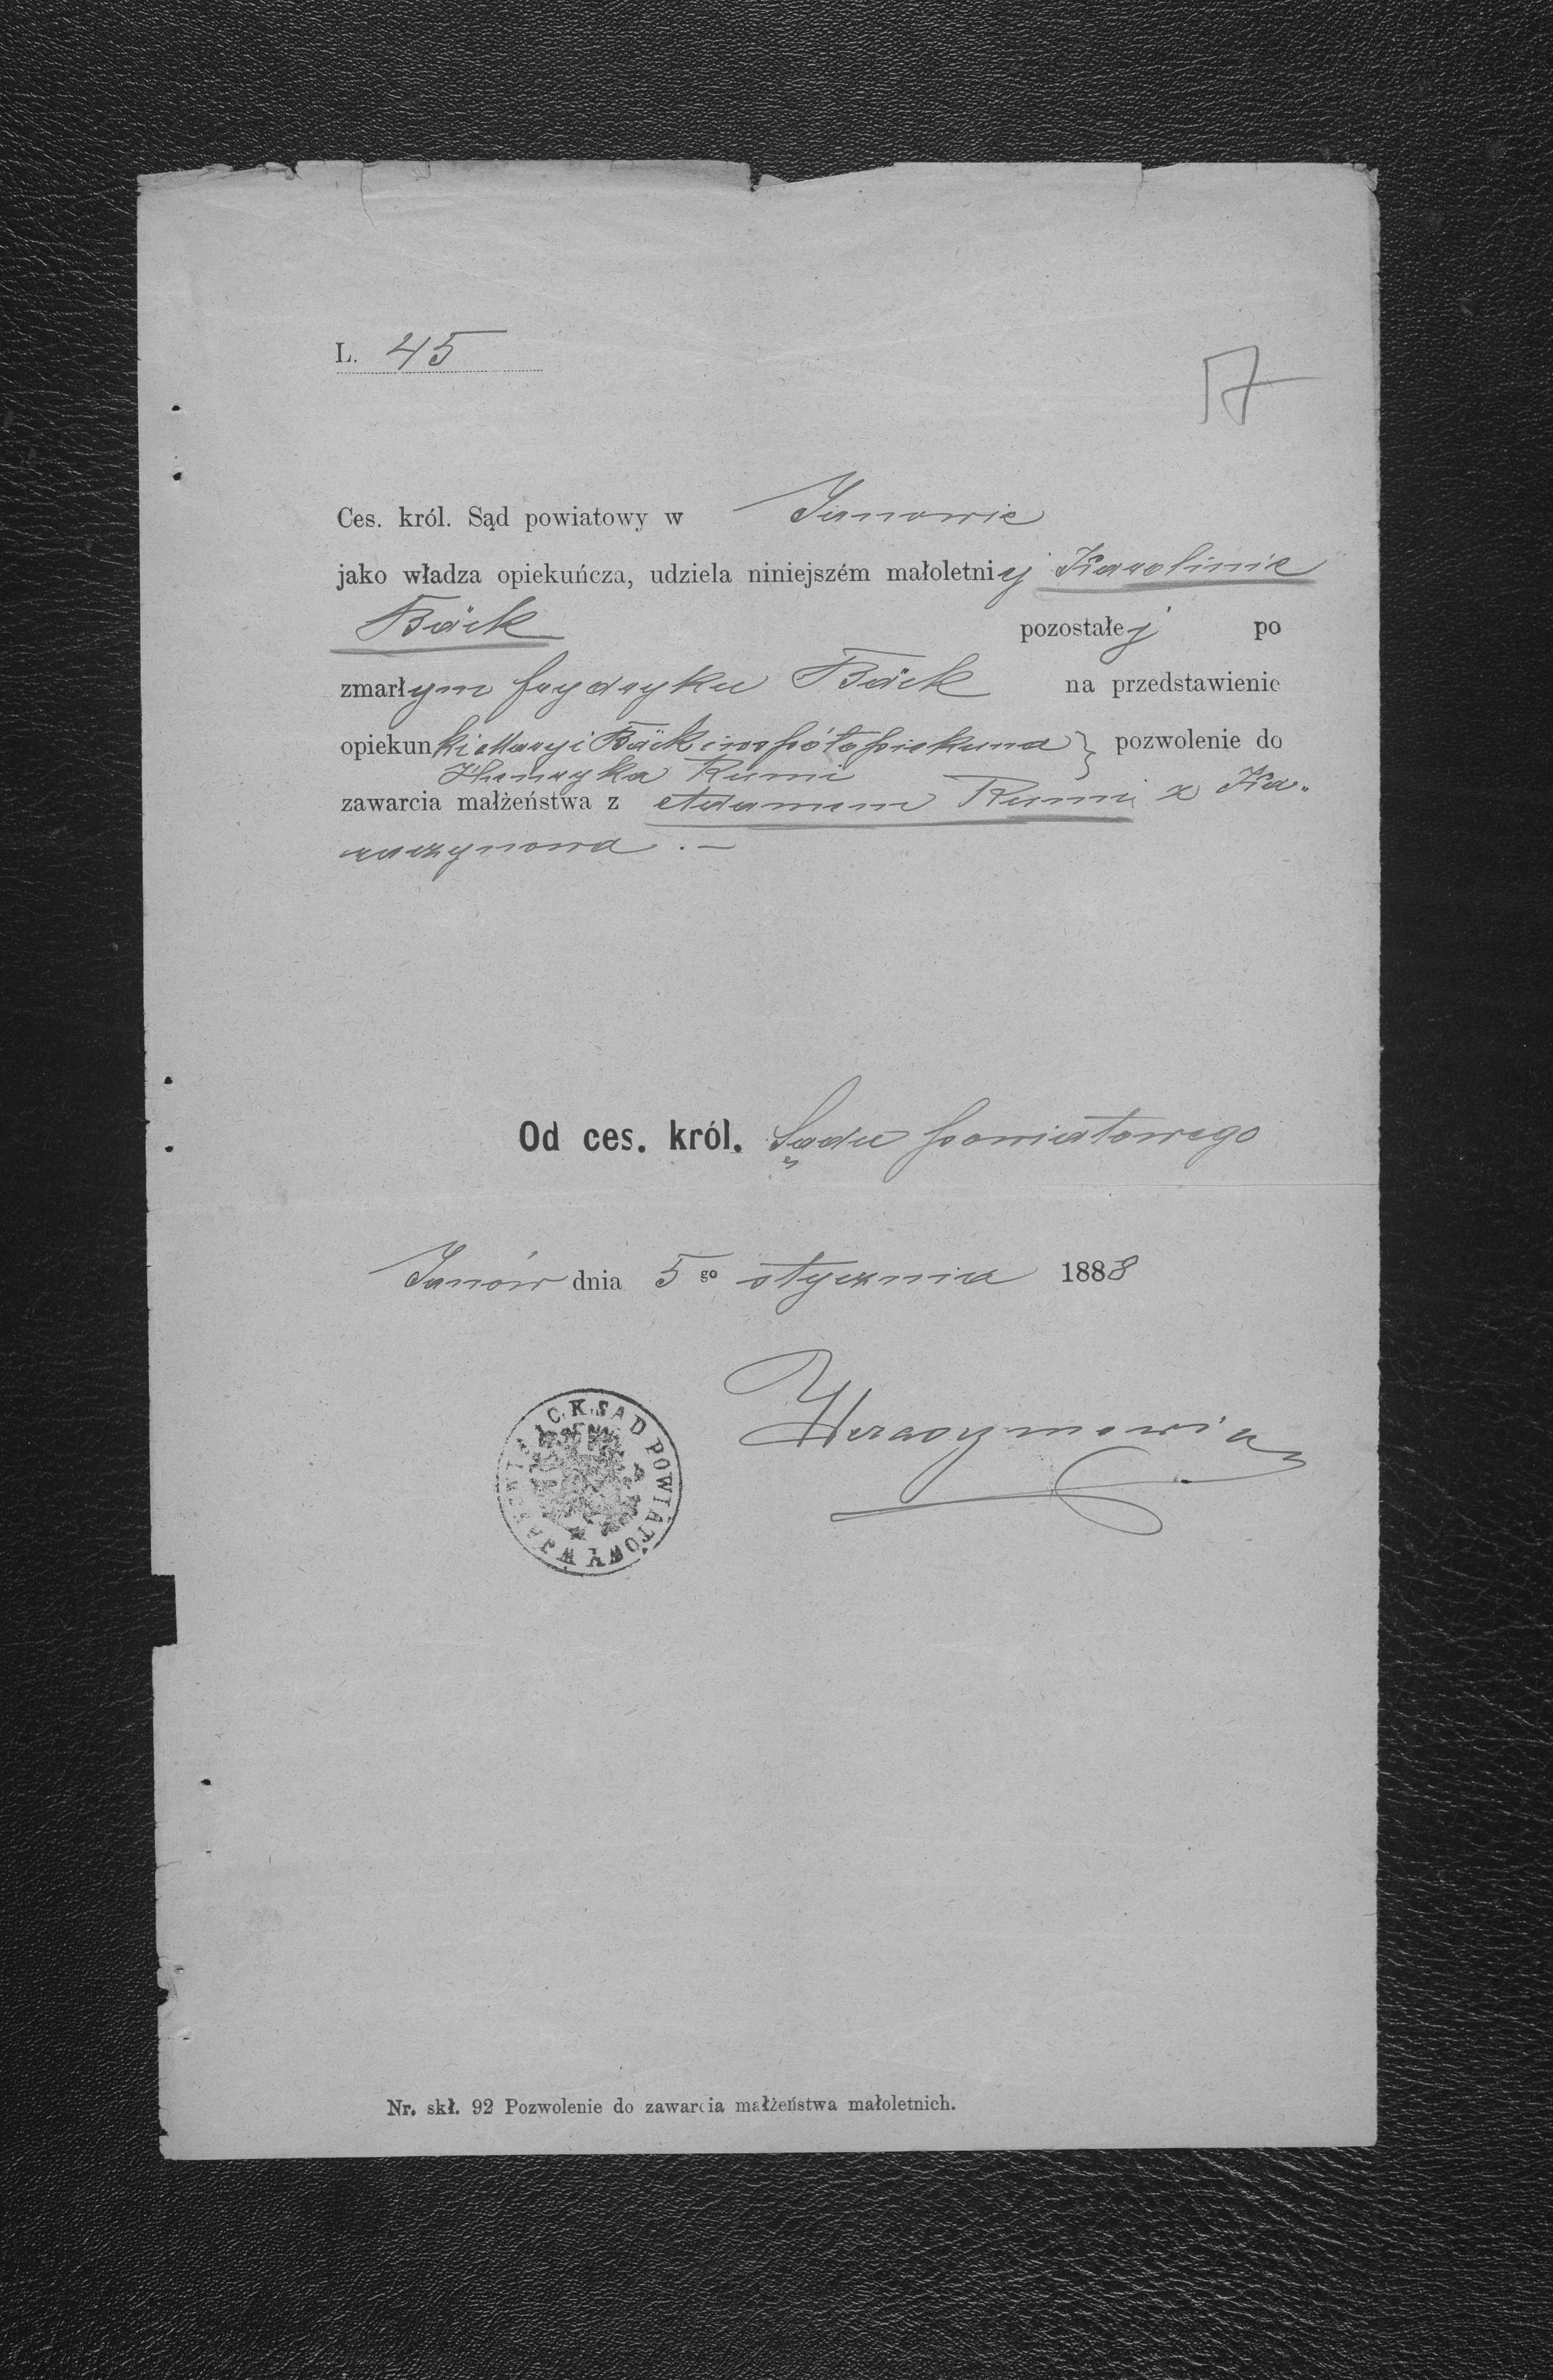 L. 45
17
Ces. król. Sąd powiatowy w Janowie
jako władza opiekuńcza, udziela niniejszém małoletniej Karolinie
Bäck pozostałej po
zmarłym frydryku Bäck na przedstawienie
opiekunki Maryi Bäck i współopiekuna } pozwolenie do
Henryka Rumi
zawarcia małżeństwa z Adamem Rumi z Ka-
raczynowa .—
Od ces. król. Sądu powiatowego
Janów dnia 5 go stycznia 1888
C. K. SĄD POWIATOWY W JANOWIE
Nr. skł. 92 Pozwolenie do zawarcia małżeństwa małoletnich.